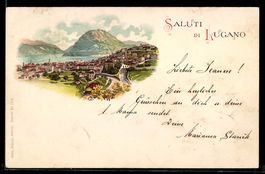 SALUTI
DI LUGANO
Liebste Jeanne!
Ein herzliches
Grüsschen an dich u deine
l. Mama sendet
Deine
Marianna